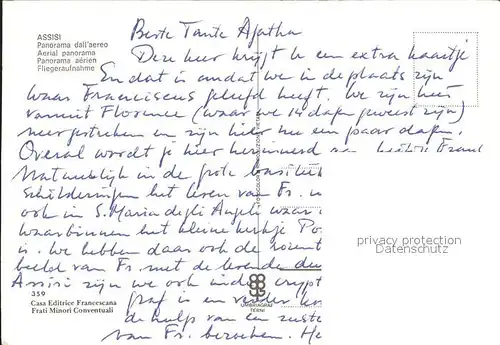 ASSISI
Panorama dall'aereo
Aerial panorama
Panorama aérien
Fliegeraufnahme
Beste Tante Agatha
Deze keer krijgt U een extra kaartje
En dat is omdat we in de plaats zijn
waar Franciscus geleefd heeft. We zijn hier
vanuit Florence (waar we 14 dagen geweest zijn)
neergestreken en zijn hier nu een paar dagen.
Overal wordt je hier herinnerd aan
Natuurlijk in de grote basiliek
schilderingen het leven van Fr.
ook in S. Maria degli Angeli waar
waarbinnen het kleine kerkje Po
is. We hebben daar ook de rozent
beeld van Fr. met de levende du
Assisi zijn we ook in de crypt
graf is en verder
de hulp van een zuste
van Fr. bezoeken. He
privacy protection
Datenschutz
359
Casa Editrice Francescana
Frati Minori Conventuali
UMBRIAGRAF
TERNI